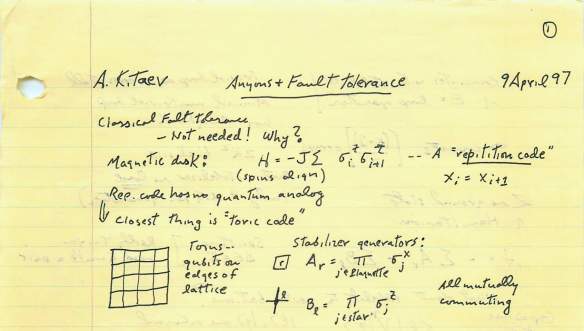 ①
A. Kitaev Anyons + Fault tolerance 9 April 97
Classical Falt tolerance
– Not needed! Why?
Magnetic disk: H = -JΣ σᵢᶻ σᵢ₊₁ᶻ -- A "repitition code"
(spins align) xᵢ = xᵢ₊₁
Rep. code has no quantum analog
⇓ Closest thing is "toric code"
Torus -- Stabilizer generators:
qubits on
edges of
lattice
r Aᵣ = Π σⱼˣ
j∈plaquette
l Bₗ = Π σⱼᶻ
j∈star
All mutually
commuting